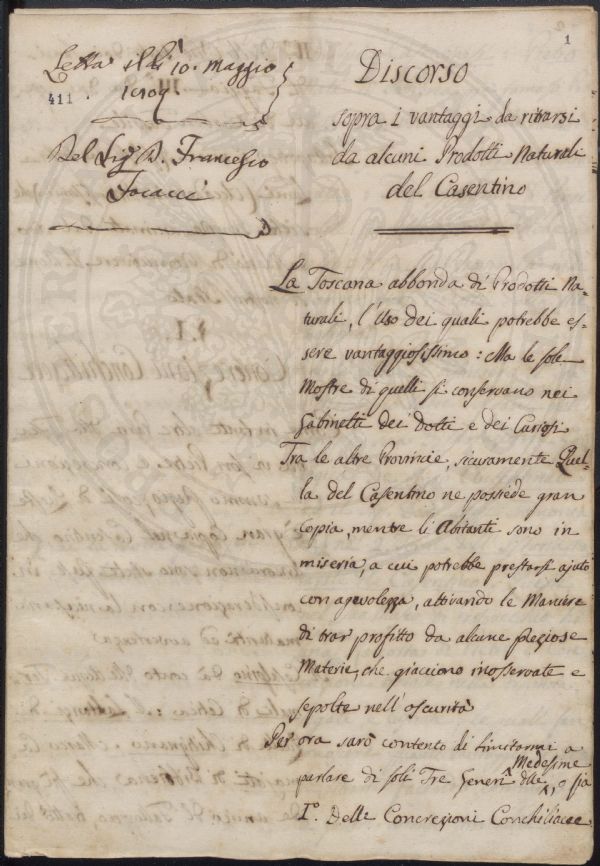 Letta il dì 10. Maggio
1809
411.
Del Sig. D. Francesco
Focacci
1
Discorso
sopra i vantaggi da ritrarsi
da alcuni Prodotti Naturali
del Casentino
La Toscana abbonda di Prodotti Na-
turali, l'Uso dei quali potrebbe es-
sere vantaggiosissimo: Ma le sole
Mostre di quelli si conservano nei
Gabinetti dei Dotti e dei Curiosi
Tra le altre Provincie, sicuramente Quel-
la del Casentino ne possiede gran
copia, mentre li Abitanti sono in
miseria, a cui potrebbe prestarsi ajuto
con agevolezza, attivando le Maniere
di trar profitto da alcune preziose
Materie, che giacciono inosservate e
sepolte nell'oscurità
Per ora sarò contento di limitarmi a
parlare di soli Tre Generi delle Medesime, o sia
I.° Delle Concrezioni Conchiliacee